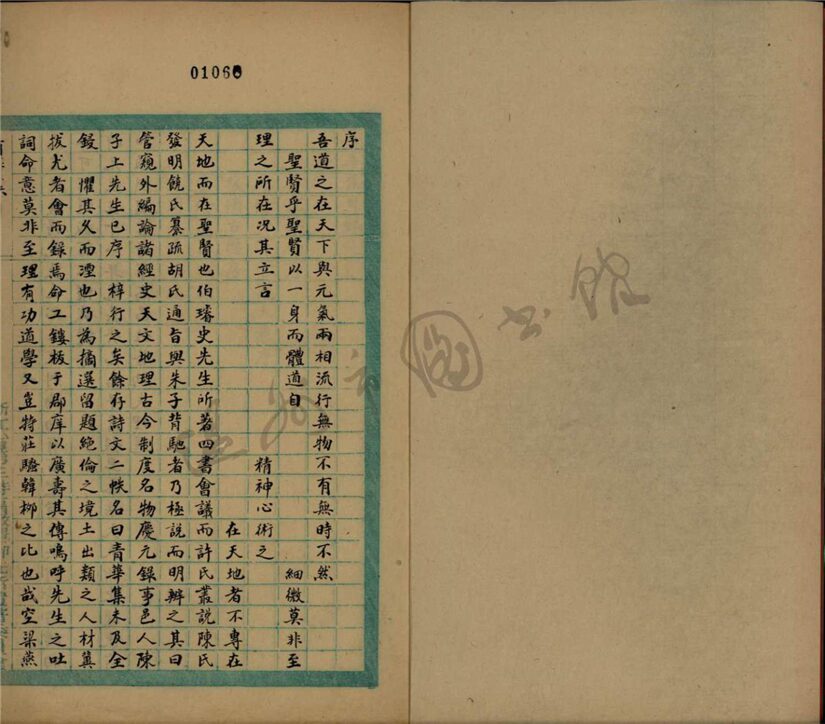 01060
序
吾道之在天下與元氣兩相流行無物不有無時不然
聖賢乎聖賢以一身而體道自 細微莫非至
理之所在况其立言 精神心術之
在天地者不專在
天地而在聖賢也伯璿史先生所著四書會議而許氏叢說陳氏
發明饒氏纂疏胡氏通旨與朱子背馳者乃極說而明辨之其曰
管窺外編論諸經史天文地理古今制度名物慶元錄事邑人陳
子上先生已序 梓行之矣餘存詩文二帙名曰青華集未及全
鋟 懼其久而湮也乃為摘選留題絕倫之境土出類之人材冀
拔尤者會而録焉命工鏤板于郡庠以廣壽其傳嗚呼先生之吐
詞命意莫非至理有功道學又豈特莊騷韓柳之比也哉空梁燕